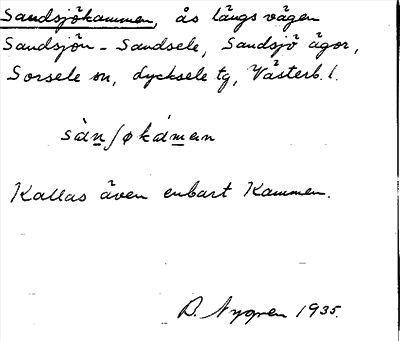 Sandsjökammen, ås längs vägen
Sandsjön - Sandsele, Sandsjö ägor,
Sorsele sn, Lycksele tg, Västerb. l.
sàn∫økámen
Kallas även enbart Kammen.
D. Nygren 1935.